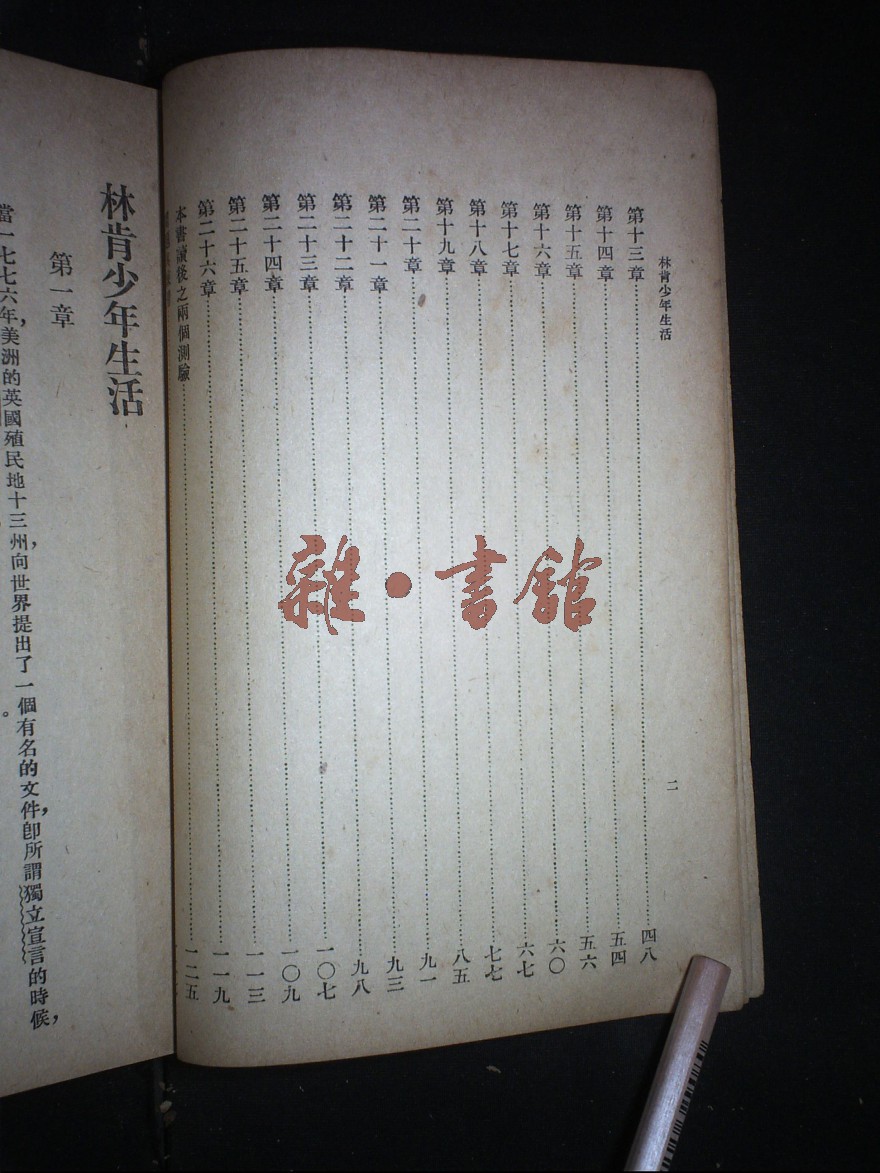 林肯少年生活
第十三章……四八
第十四章……五四
第十五章……五六
第十六章……六〇
第十七章……六七
第十八章……七七
第十九章……八五
第二十章……九一
第二十一章……九三
第二十二章……九八
第二十三章……一〇七
第二十四章……一〇九
第二十五章……一一三
第二十六章……一一九
本書讀後之兩個測驗……一二五
二
林肯少年生活
第一章
當一七七六年,美洲的英國殖民地十三州,向世界提出了一個有名的文件,卽所謂獨立宣言的時候,
雜·書館